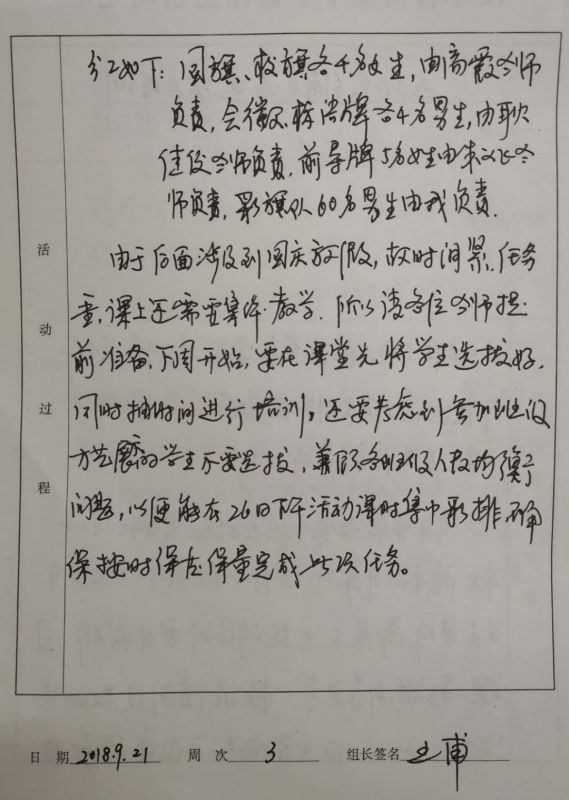 分工如下：国旗、校旗各4名女生，由高霞老师
负责，会徽及标语牌各4名男生，由耿
佳俊老师负责，前导牌5名女生由老
师负责，彩旗队60名男生由我负责.
由于后面涉及到国庆放假，故时间紧，任务
重，课上还需要集体教学. 所以请各位老师提
前准备，下周开始，要在课堂先将学生选拔好.
同时抽时间进行培训。还要考虑到参加班级
方队的学生不要选拔，兼顾各班级人数均衡
问题，以便能在26日下午活动课时集中彩排，确
保按时保质保量完成此次任务。
活
动
过
程
日 期 2018.9.21 周 次 3 组长签名 王甫